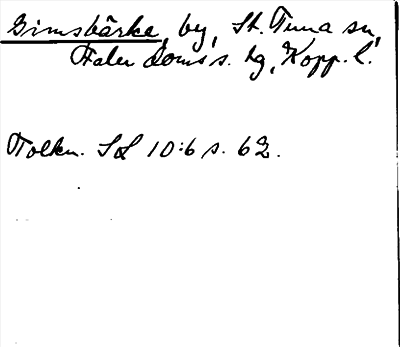 Gimsbärke, by, St. Tuna sn,
Falu doms s. hg, Kopp. l.
Tolkn. Sd 10:6 s. 62.